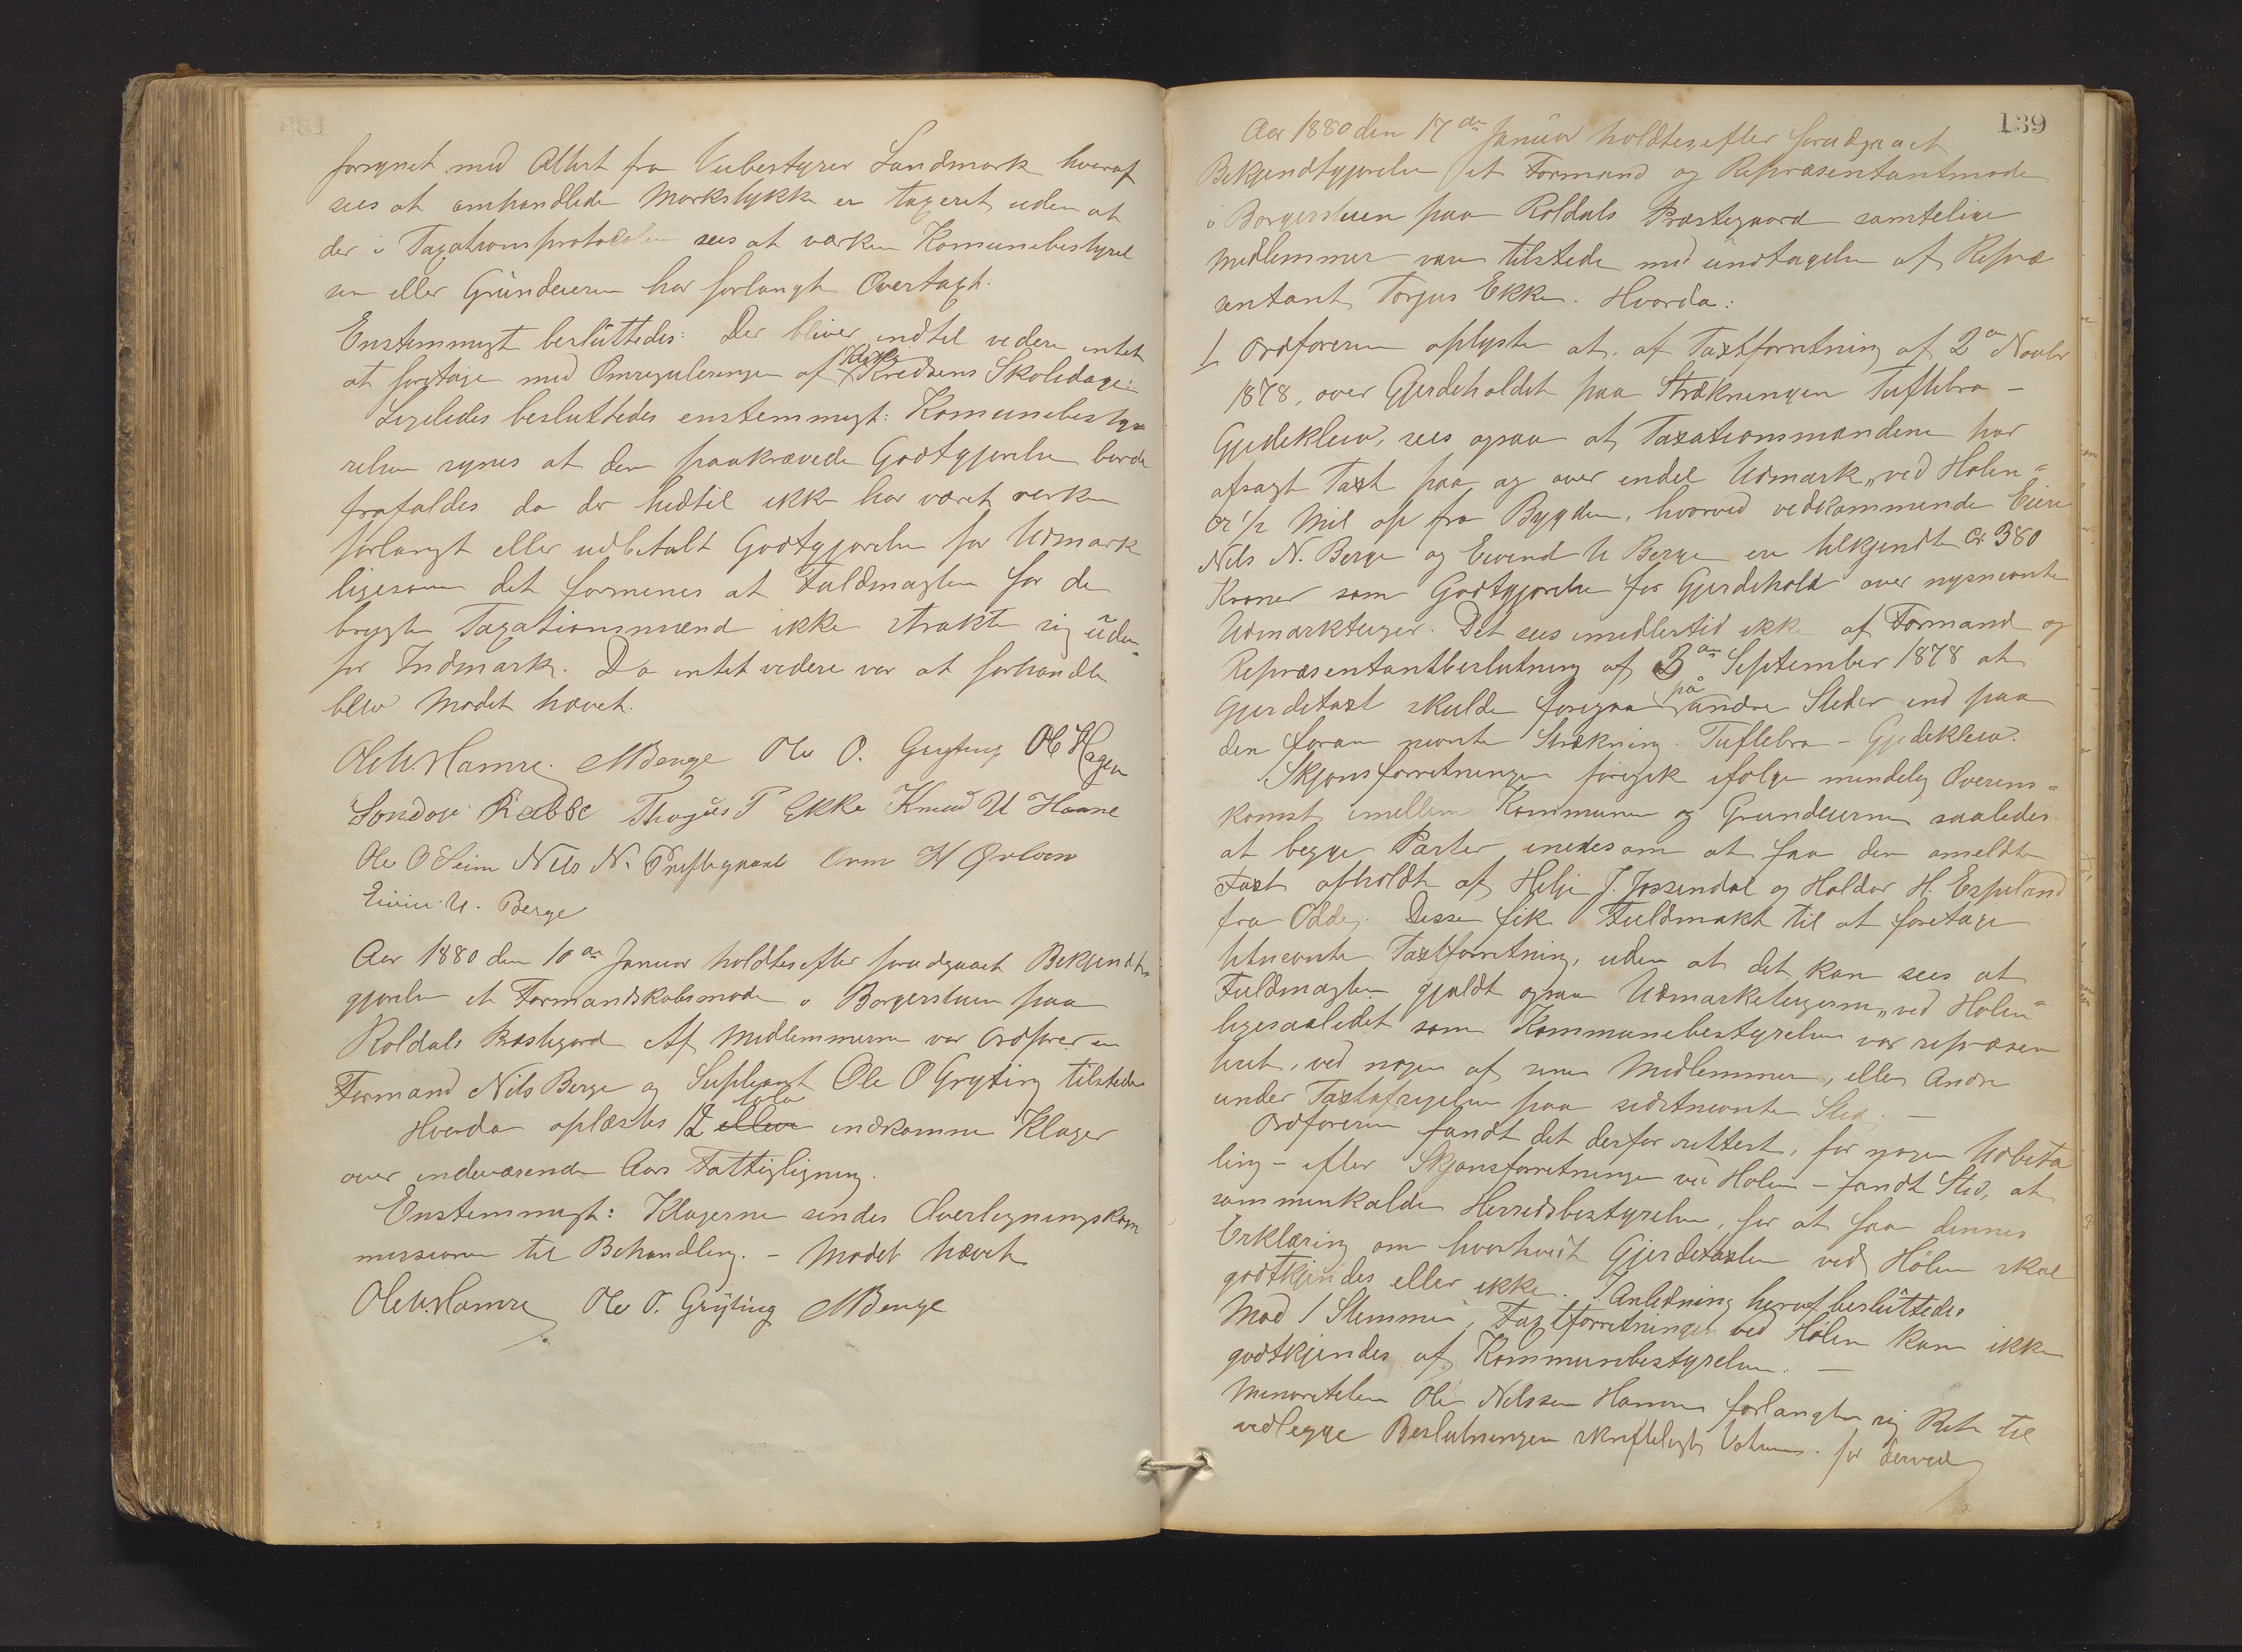 forsynet med Attest fra Veibestyrer Landmark hvoraf
sees at omhandlede Markstykke er taxeret uden at
der i Taxationsprotocolen sees at værken Komunebestyrel
sen eller Grundeieren har forlangt Overtaxt.
Enstemmigt besluttedes: Der bliver indtil videre intet
at foretage med Omreguleringen af Kredsens Skoledage:
Ligeledes besluttedes enstemmigt: Komunebesty=
relsen synes at den paakrævede Godtgjørelse burde
frafaldes da der hidtil ikke har været verken
forlangt eller udbetalt Godtgjørelse for Udmark
ligesom det formenes at Fuldmagten for de
brugte Taxationsmænd ikke strakte sig uden=
for Indmark. Da intet videre var at forhandle
blev Mødet hævet.
Ole N. Hamre. N Berge Ole O. Gryting Ole Hagen
Sondov Rabbe Thorgius T Ekke Knud U Haane
Ole O Seim Nils N. Prestegaard Orm H
Eivin U. Berge
Aar 1880 den 10de Januar holdtes efter forudgaaet Bekjendt
gjørelse et Formandskabsmøde i Borgerstuen paa
Roldals Præstegard Af Medlemmerne var Ordføreren
Formand Nils Berge og Supleant Ole O Gryting tilstede
Hvorda oplæstes 12 tolv elleve indkomne Klager
over indeværende Aars Fattigligning.
Enstemmigt: Klagerne sendes Overligningskom
missionen til Behandling. - Mødet hævet
Ole N. Hamre Ole O. Gryting N Berge
139
Aar 1880 den 17de Januar holdtes efter forudgaaet
Bekjendtgjørelse et Formand og Repræsentantmøde
i Borgerstuen paa Roldals Præstegaard samtelige
Medlemmer vare tilstede med undtagelse af Repræ
sentant Torjus Ekke. Hvorda:
1 Ordføreren oplyste at, af Taxtforretning af 2de Novbr
1878, over Gjerdeholdet paa Strækningen Tuftebro -
Gjedeklew, sees ogsaa at Taxationsmændene har
afsagt Taxt paa og over endel Udmark „ved Hølen"
cr 1/2 Mil op fra Bygden, hvorved vedkommende Eiere
Nils N. Berge og Eivend U Berge ere tilkjendte cr. 380
Kroner som Godtgjørelse for Gjerdehold over nysnevnte
Udmarkteiger. Det sees imidlertid ikke af Formand og
Repræsentantbeslutning af 3de September 1878 at
Gjerdetaxt skulde foregaa på andre Steder end paa
den foran nevnte Strækning. Tuftebro - Gjedeklew.
Skjønsforretningen foregik ifølge mindelig Overens=
komst imellem Kommunen og Grundeierne saaledes
at begge Parter enedes om at faa den omeldte
Taxt afholdt af Helje J. Jøssendal og Haldor H. Espeland
fra Odde. Disse fik Fuldmakt til at foretage
betnevnte Taxtforretning, uden at det kan sees at
Fuldmagten gjaldt ogsaa Udmarketeigerne „ved Hølen"
ligesaalidet som Kommunebestyrelsen var repræsen
teret, ved nogen af sine Medlemmer, eller Andre
under Taxtafsigelsen paa sidstnevnte Sted. —
Ordføreren fandt det derfor rettest, før nogen Udbeta
ling - efter Skjønsforretningen ved Hølen - fandt Sted, at
sammenkalde Herredsbestyrelsen, for at faa dennes
Erklæring om hvorvidt Gjerdetaxten ved Hölen skal
godtkjendes eller ikke. I Anledning heraf besluttedes
Mod 1 Stemme, Taxtforretningen ved Hölen kan ikke
godtkjendes af Kommunebestyrelsen. —
Minoriteten Ole Nelssen Hamre forlangte sig Ret til
vedlegge Beslutningen skriftligt Votum. for derved